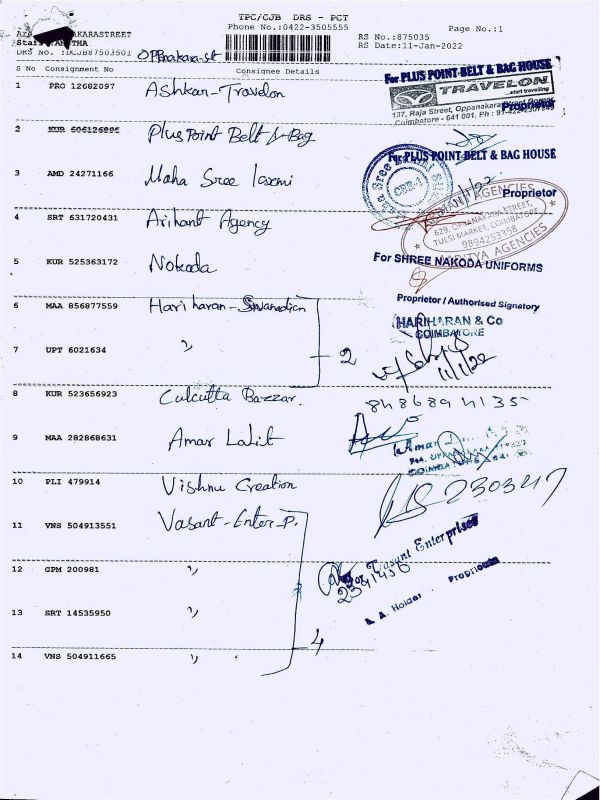 TPC/CJB DRS - PCT
Phone No.:0422-3505555
Page No.:1
RS No.:875035
RS Date:11-Jan-2022
AKARASTREET
DRS No. :DCJB87503501
OPPanakara-st
S No Consignment No Consignee Details
1 PRO 12682097 Ashkar-Travelon
For PLUS POINT BELT & BAG HOUSE
TRAVELON
...start travelling
137, Raja Street, Oppanakara
Coimbatore - 641 001. Ph :
Proprietor
2 KUR 606126885 Plus Point Belt & Bag
For PLUS POINT BELT & BAG HOUSE
Proprietor
3 AMD 24271166 Maha Sree laxmi
4 SRT 631720431 Arihant Agency
AGENCIES
629, OPPANAKARA STREET,
TULSI MARKET, COIMBATORE
9894253358
ADITYA AGENCIES
5 KUR 525363172 Nokoda
For SHREE NAKODA UNIFORMS
Proprietor / Authorised Signatory
6 MAA 856877559 Hari haran-
HARIHARAN & Co
COIMBATORE
7 UPT 6021634 ,,
2
11/1/22
8 KUR 523656923 Culcutta Bazzar.
8486894135
9 MAA 282868631 Amar Lalit
10 PLI 479914 Vishnu Creation
230347
11 VNS 504913551 Vasant-Enter-P.
For Vasant Enterprises
2341456
12 GPM 200981 ,,
Proprietor
A. A. Holder
13 SRT 14535950 ,,
4
14 VNS 504911665 ,,